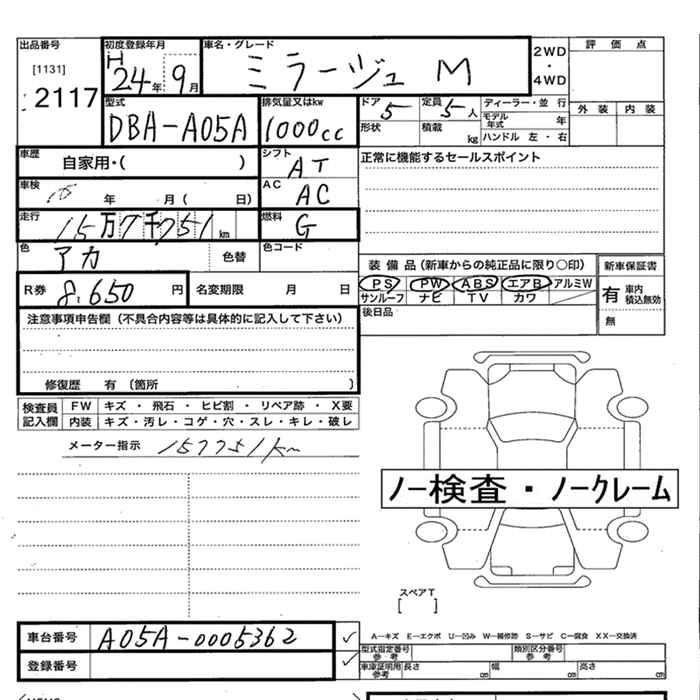 出品番号 初度登録年月 車名・グレード 2WD 評価点
[1131] H 24年 9月 ミラージュ M ・
2117 4WD
型式 排気量又はkw ドア 5 定員 5人 ディーラー・並 行 外装 内装
DBA-A05A 1000cc 形状 積載 kg モデル年式 年
ハンドル 左・右
車歴 自家用・( ) シフト AT 正常に機能するセールスポイント
車検 年 月( 日) AC AC
走行 15万7千751km 燃料 G
色 アカ 色替 色コード
装備品(新車からの純正品に限り○印) 新車保証書
R券 8,650円 名変期限 月 日 PS PW ABS エアB アルミW 有 車内積込無効
サンルーフ ナビ TV カワ
後日品 無
注意事項申告欄(不具合内容等は具体的に記入して下さい)
修復歴 有(箇所 )
検査員 FW キズ・飛石・ヒビ割・リペア跡・X要
記入欄 内装 キズ・汚レ・コゲ・穴・スレ・キレ・破レ
メーター指示 157751km
ノー検査・ノークレーム
スペアT
[ ]
車台番号 A05A-0005362 A-キズ E-エクボ U-凹み W-補修跡 S-サビ C-腐食 XX-交換済
型式指定番号 参考 類別区分番号 参考
登録番号 車庫証明用 参考 長さ cm 幅 cm 高さ cm